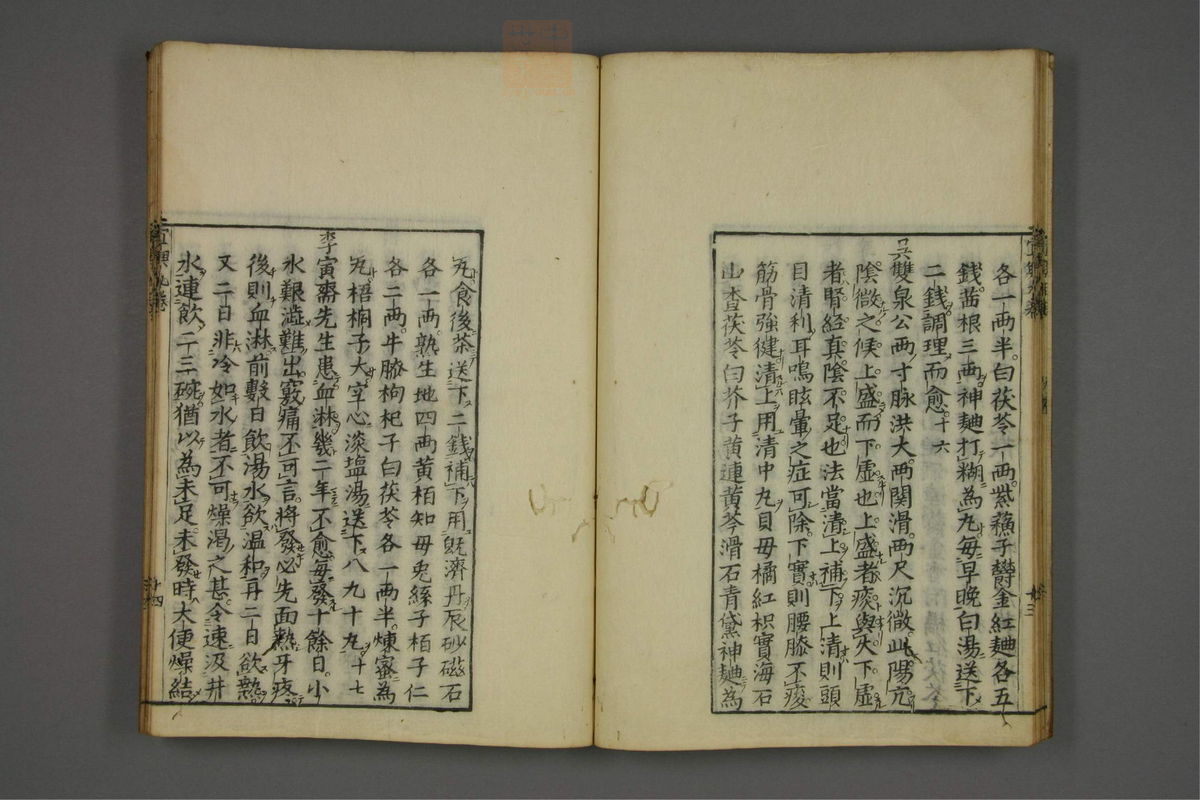 各一兩半白茯苓一兩紫蘓子欝金紅麯各五
錢茜根三兩神麯打糊為丸每早晚白湯送下
二錢調理而愈十六
吳雙泉公兩寸脉洪大兩関滑兩尺沉微此陽亢
陰微之候上盛而下虛也上盛者痰與火下虛
者腎經真陰不足也法當清上補下上清則頭
目清利耳鳴眩暈之症可除下實則腰膝不痠
筋骨強健清上用清中丸貝母橘紅枳實海石
山查茯苓白芥子黄連黄芩滑石青黛神麯為
丸食後茶送下二錢補下用既濟丹辰砂磁石
各一兩熟生地四兩黄栢知母兎絲子栢子仁
各二兩牛膝枸杞子白茯苓各一兩半煉蜜為
丸梧桐子大空心淡塩湯送下八九十丸十七
李寅齋先生患血淋幾二年不愈每發十餘日小
水艱澁難出竅痛不可言將發必先面熱牙疼
後則血淋前數日飲湯水欲温和再二日欲熱
又二日非冷如氷者不可燥渴之甚令速汲井
水連飲二三碗猶以為未足未發時大便燥結